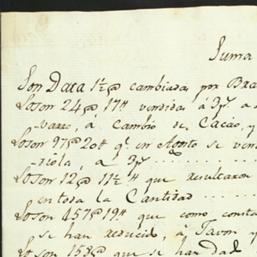 Suma
Son Data 1½ @ cambiadas por Bra
Yo son 24 @ 17 tt vendidas á 3 p.s a
á Cambio de Cacao, y
Yo son 97 @ 20 tt q.e en Agosto se ven
á 3 p.s
Yo son 12 @ 11½ tt que resultaron
en toda la Cantidad
Yo son 457 @ 19 tt que como consta
se han reducido, á favor y
Yo son 158 @ que se han Dad